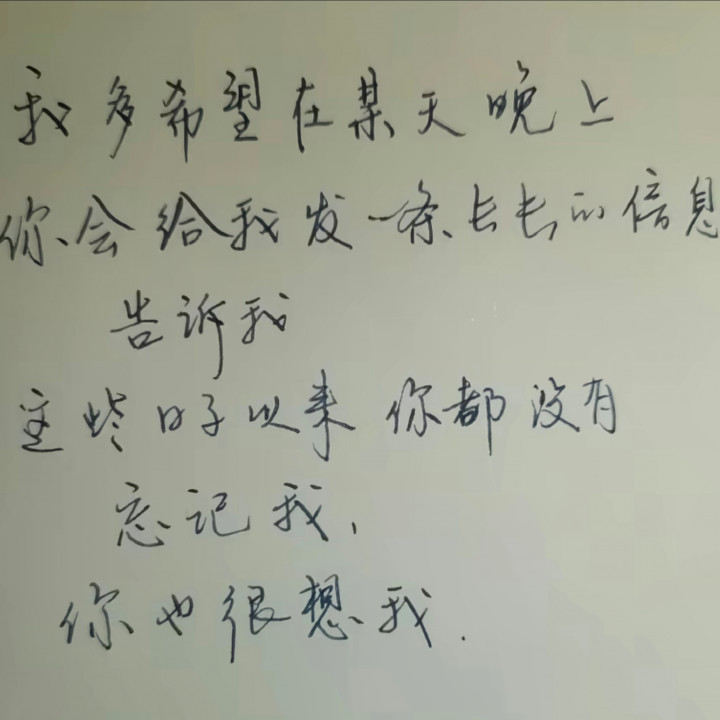 我多希望在某天晚上
你会给我发一条长长的信息
告诉我
这些日子以来 你都没有
忘记我,
你也很想我.